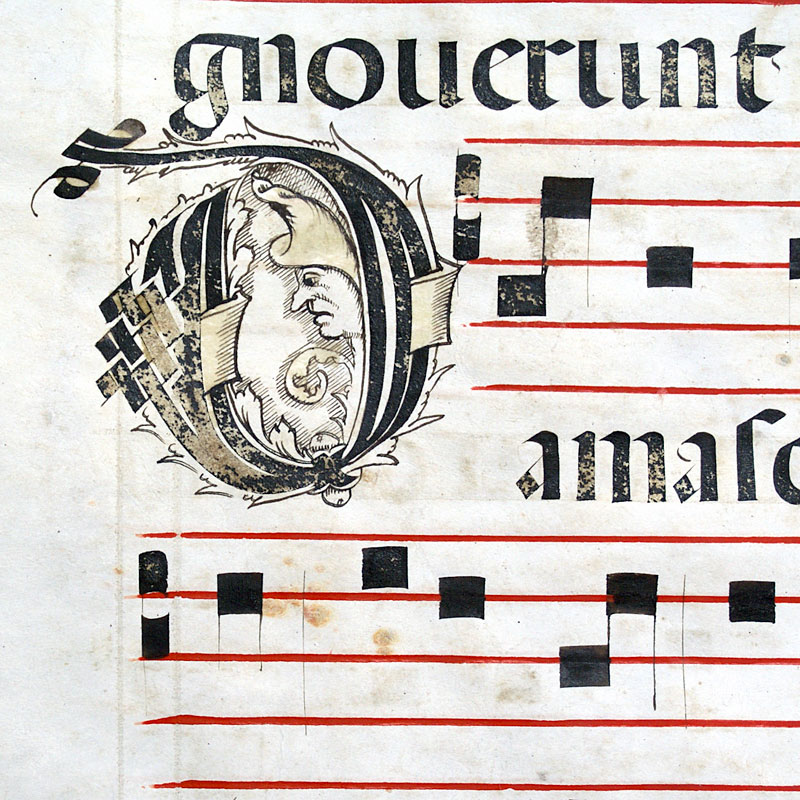 gnouerunt
Damaſc